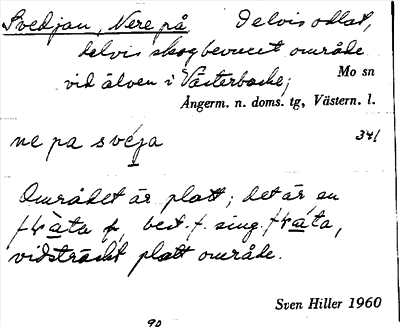 Svedjan, Nere på Delvis odlat,
delvis skogbevuxet område
vid älven i Västerbacke;
Mo sn
Ångerm. n. doms. tg, Västern. l.
ne pa sveja
341
Området är platt; det är en
f., best. f. sing.
vidsträckt platt område.
Sven Hiller 1960
90